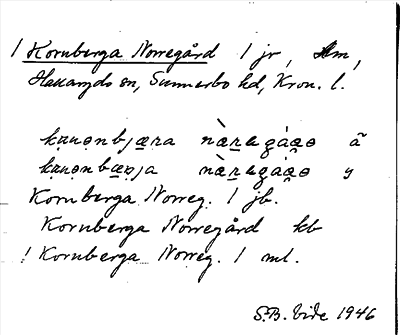 ! Kornberga Norregård 1 jr, Hm,
Hallaryds sn, Sunnerbo hd, Kron. l.
kɑnɵnbjæra nὰragáɑɵ ã
kɑnɵnbærja nὰragáɑɵ y
Kornberga Norreg. 1 jb.
Kornberga Norregård kb
! Kornberga Norreg. 1 ml.
S.B. Vide 1946